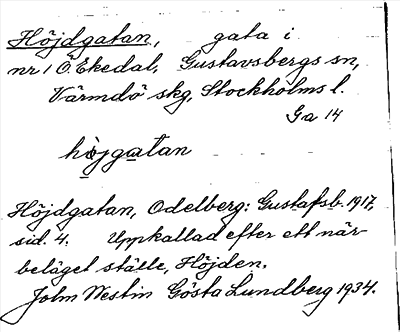 Höjdgatan, gata i
nr 1 Ö. Ekedal, Gustavsbergs sn,
Värmdö skg, Stockholms l.
Ga 14
höjgatan
Höjdgatan, Odelberg: Gustafsb. 1917,
sid. 4. Uppkallad efter ett när-
beläget ställe, Höjden.
John Westin Gösta Lundberg 1934.